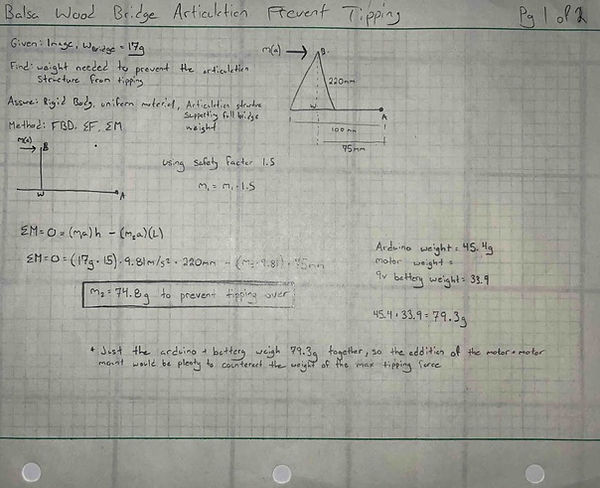 Balsa Wood Bridge Articulation Prevent Tipping Pg 1 of 2
Given: Image, Wbridge = 17g
Find: weight needed to prevent the articulation
structure from tipping
Assume: Rigid Body, uniform material, Articulation structure
supporting full bridge
weight
Method: FBD, ΣF, ΣM
m(a)
B
220mm
W
A
100mm
75mm
m(a)
B
W
A
using safety factor 1.5
m₁ = m₁ · 1.5
ΣM = 0 = (ma)h - (m₂a)(L)
ΣM = 0 = (17g · 1.5) · 9.81m/s² · 220mm - (m₂ · 9.81) · 75mm
m₂ = 74.8g to prevent tipping over
Arduino weight = 45.4g
motor weight =
9v battery weight = 33.9
45.4 + 33.9 = 79.3g
* Just the arduino + battery weigh 79.3g together, so the addition of the motor + motor
mount would be plenty to counteract the weight of the max tipping force